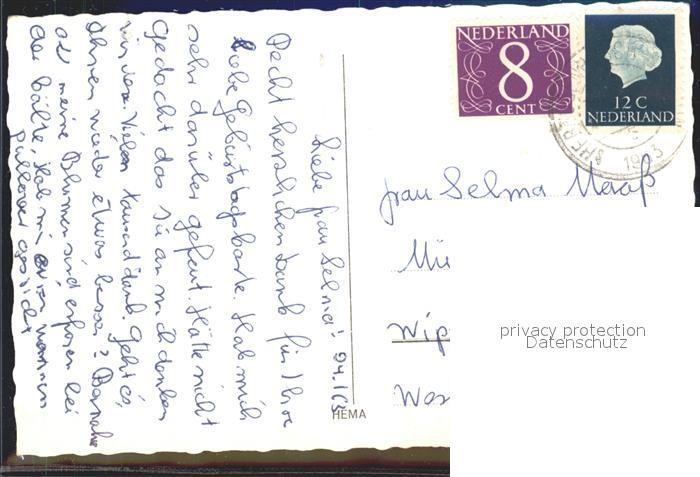 Liebe Frau Selma! 24.1.63
Recht herzlichen Dank für Ihre
liebe Gebürtstagskarte. Hab mich
sehr darüler gefeut. Hätte nicht
gedacht das Sie an mich denken
Vielen tausend dank. Geht es
Ihnen wieder etwas besser? Beinahe
all meine Blumen sind erfroren bei
der Kälte, Hab mir einen warmen
Pullover
HEMA
NEDERLAND
8
CENT
12 C
NEDERLAND
1963
Frau Selma Maaß
Mü
Wip
Wes
privacy protection
Datenschutz